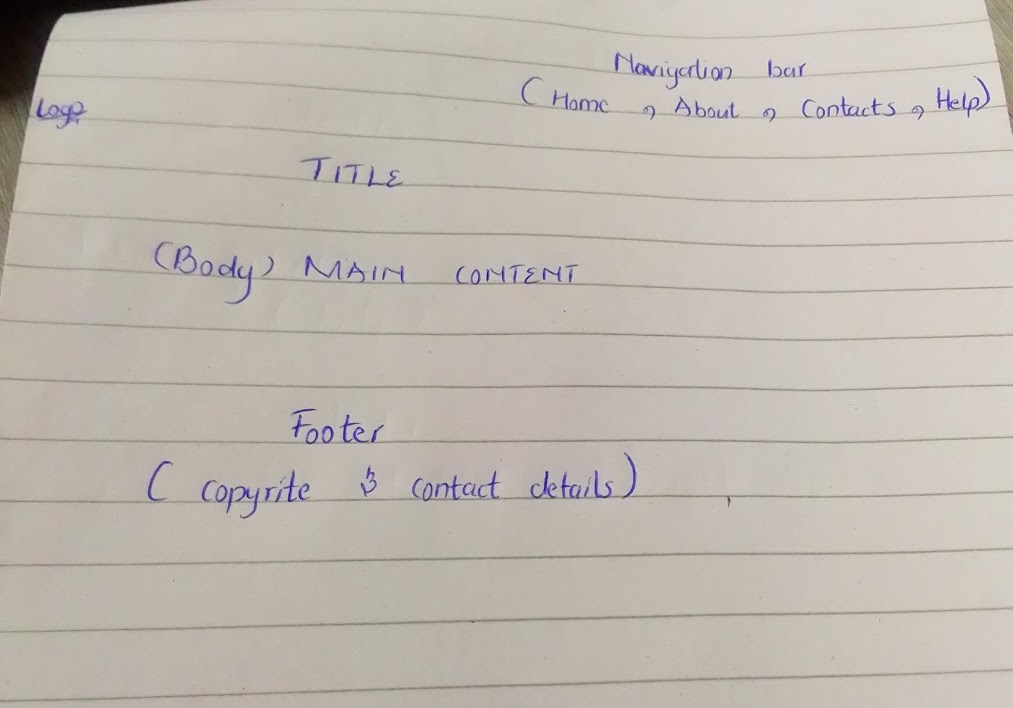 Navigation bar
Logo
(Home, About, Contacts, Help)
TITLE
(Body) MAIN CONTENT
Footer
(copyrite & contact details)